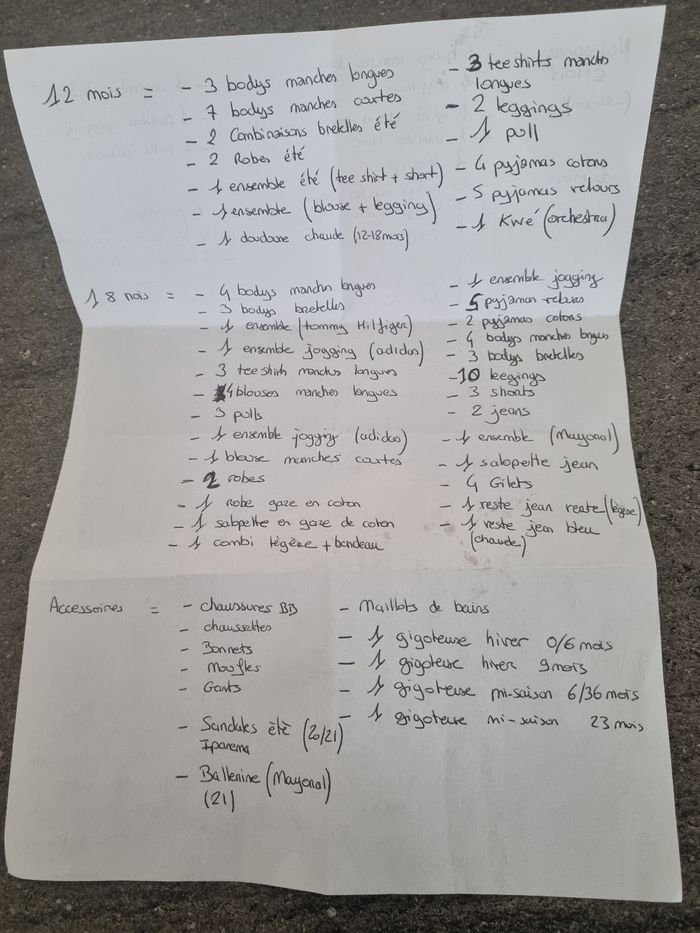 12 mois = - 3 bodys manches longues
- 7 bodys manches cortes
- 2 Combinaisons bretelles été
- 2 Robes été
- 1 ensemble été (tee shirt + short)
- 1 ensemble (blouse + legging)
- 1 doudoune chaude (12-18mois)
- 3 tee shirts manches
longues
- 2 leggings
- 1 pull
- 4 pyjamas cotons
- 5 pyjamas velours
- 1 Kwé (orchestra)
18 mois = - 4 bodys manches longues
- 3 bodys bretelles
- 1 ensemble (tommy Hilfiger)
- 1 ensemble jogging (adidas)
- 3 tee shirts manches longues
- 4 blouses manches longues
- 3 pulls
- 1 ensemble jogging (adidas)
- 1 blouse manches cortes
- 2 robes
- 1 robe gaze en coton
- 1 salopette en gaze de coton
- 1 combi légère + bandeau
- 1 ensemble jogging
- 5 pyjamas velours
- 2 pyjamas cotons
- 4 bodys manches longues
- 3 bodys bretelles
- 10 leegings
- 3 shorts
- 2 jeans
- 1 ensemble (Mayoral)
- 1 salopette jean
- 4 Gilets
- 1 veste jean verte (légère)
- 1 veste jean bleu
(chaude)
Accessoires = - chaussures BB
- chaussettes
- Bonnets
- Moufles
- Gants
- Sandales été (20/21)
Ipanema
- Ballerine (Mayoral)
(21)
- Maillots de bains
- 1 gigoteuse hiver 0/6 mois
- 1 gigoteuse hiver 9mois
- 1 gigoteuse mi-saison 6/36 mois
- 1 gigoteuse mi-saison 23 mois